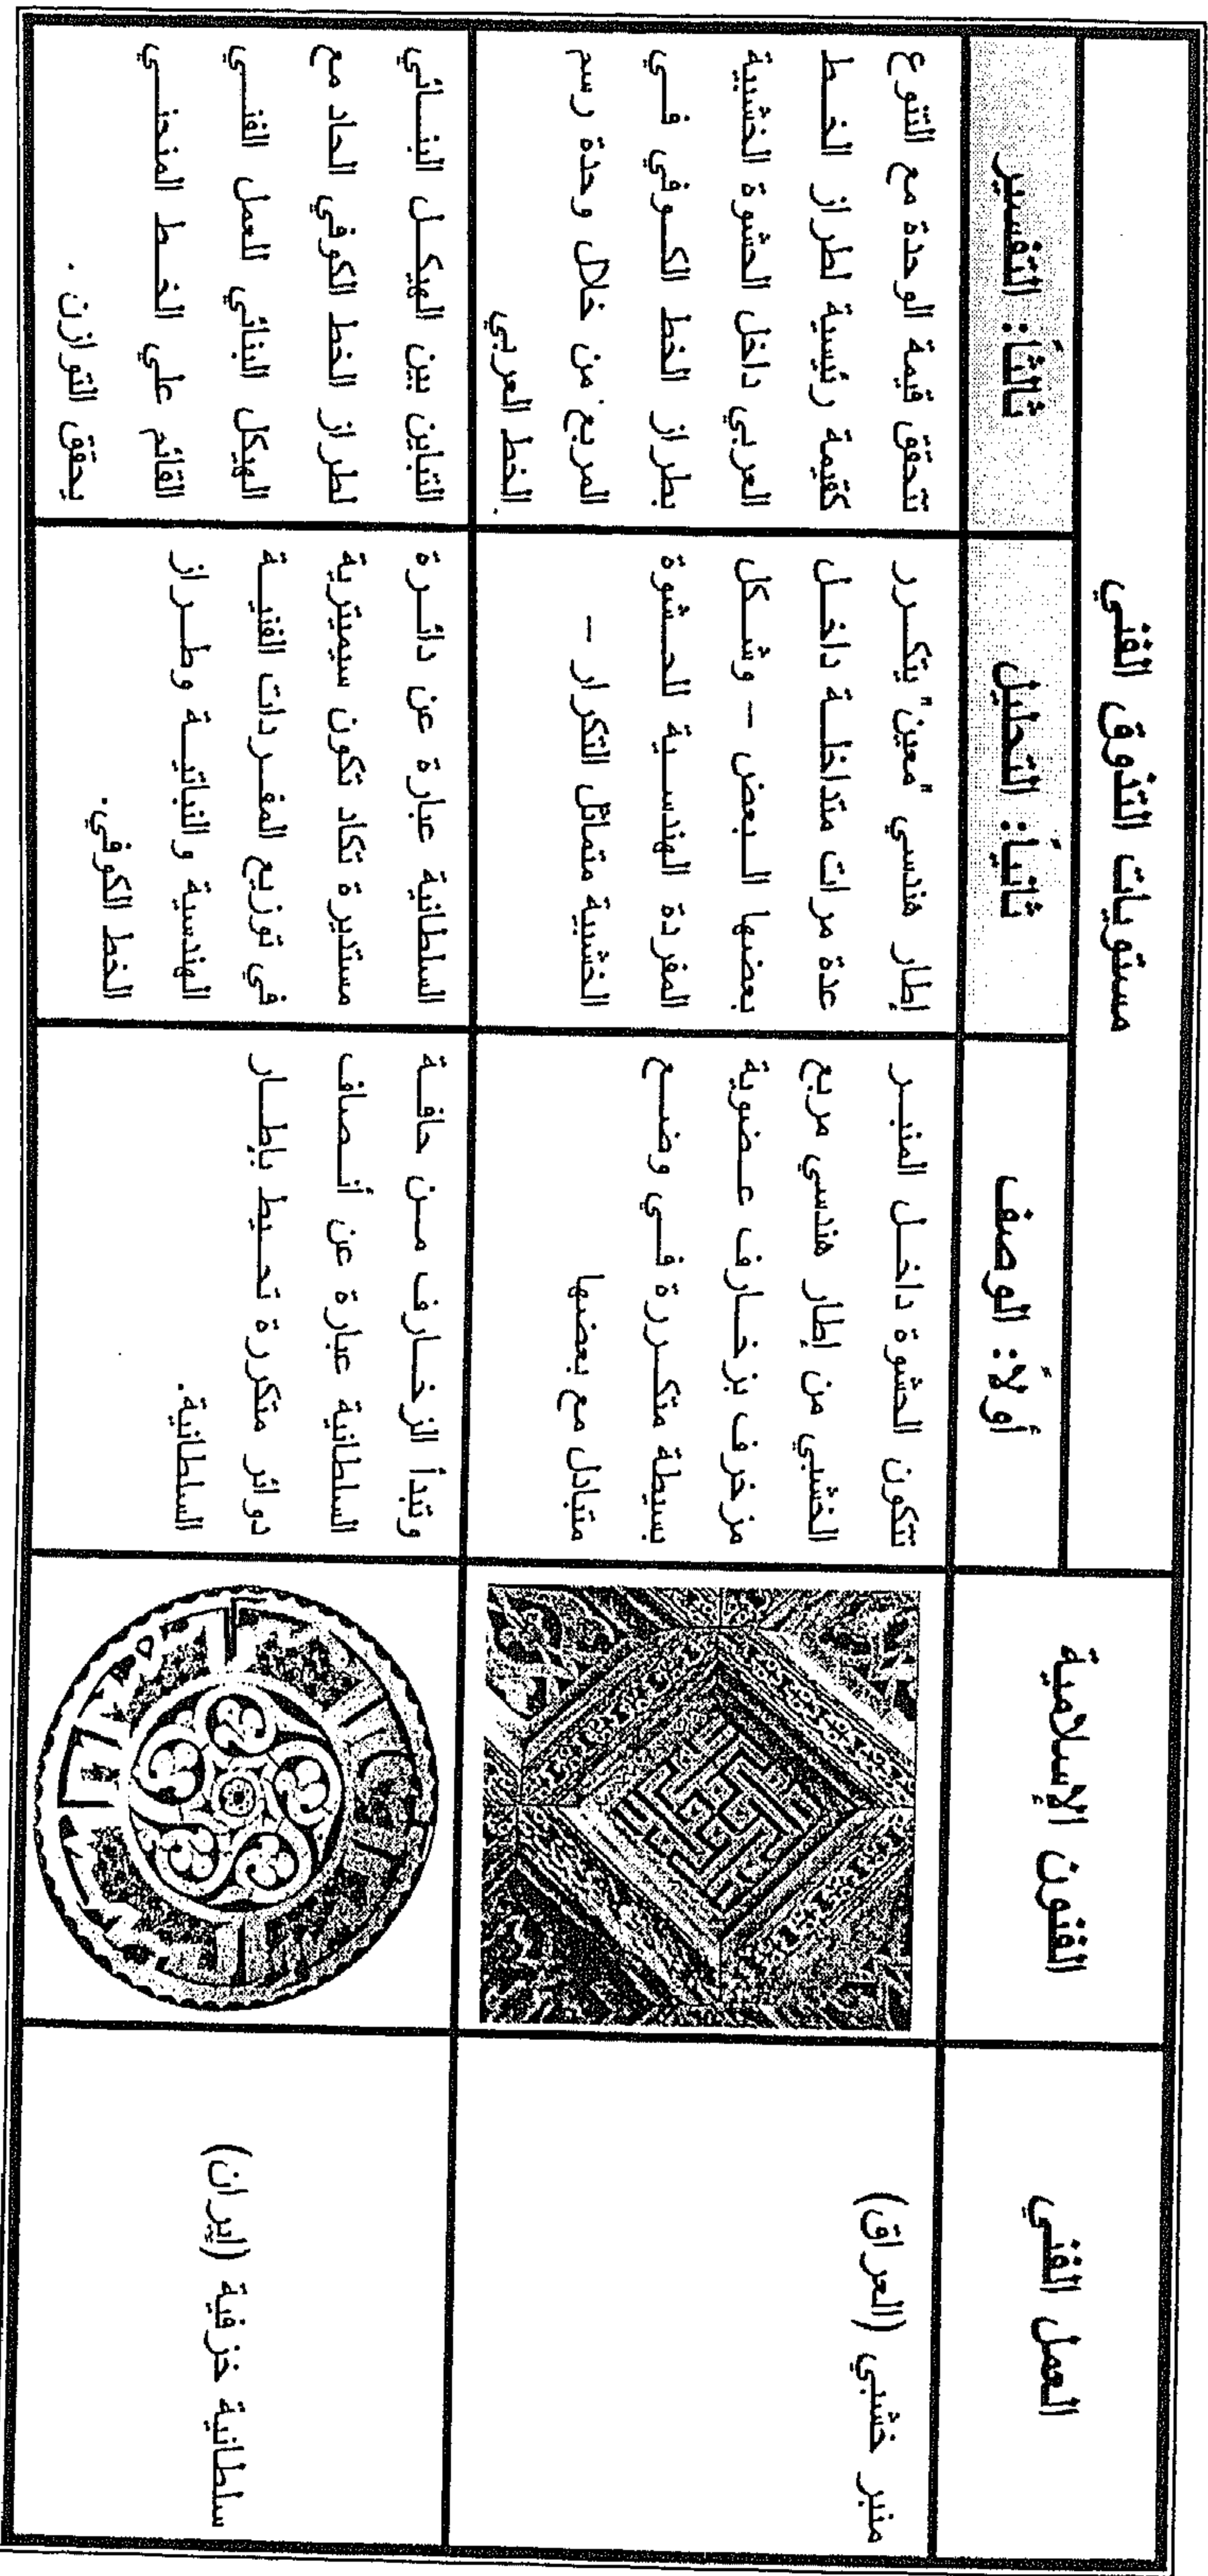 العمل الفني
الفنون الإسلامية
مستويات التذوق الفني
أولاً: الوصف
ثانياً: التحليل
ثالثاً: التفسير
منبر خشبي (العراق)
تتكون الحشوة داخل المنبر
الخشبي من إطار هندسي مربع
مزخرف بزخارف عضوية
بسيطة متكررة في وضع
متبادل مع بعضها
إطار هندسي "معين" يتكرر
عدة مرات متداخلة داخل
بعضها البعض – وشكل
المفردة الهندسية للحشوة
الخشبية متماثل التكرار –
تتحقق قيمة الوحدة مع التنوع
كقيمة رئيسية لطراز الخط
العربي داخل الحشوة الخشبية
بطراز الخط الكوفي في
المربع من خلال وحدة رسم
الخط العربي
سلطانية خزفية (إيران)
وتبدأ الزخارف من حافة
السلطانية عبارة عن أنصاف
دوائر متكررة تحيط بإطار
السلطانية.
السلطانية عبارة عن دائرة
مستديرة تكاد تكون سيميترية
في توزيع المفردات الفنية
الهندسية والنباتية وطراز
الخط الكوفي.
التباين بين الهيكل البنائي
لطراز الخط الكوفي الحاد مع
الهيكل البنائي للعمل الفني
القائم علي الخط المنحني
يحقق التوازن .